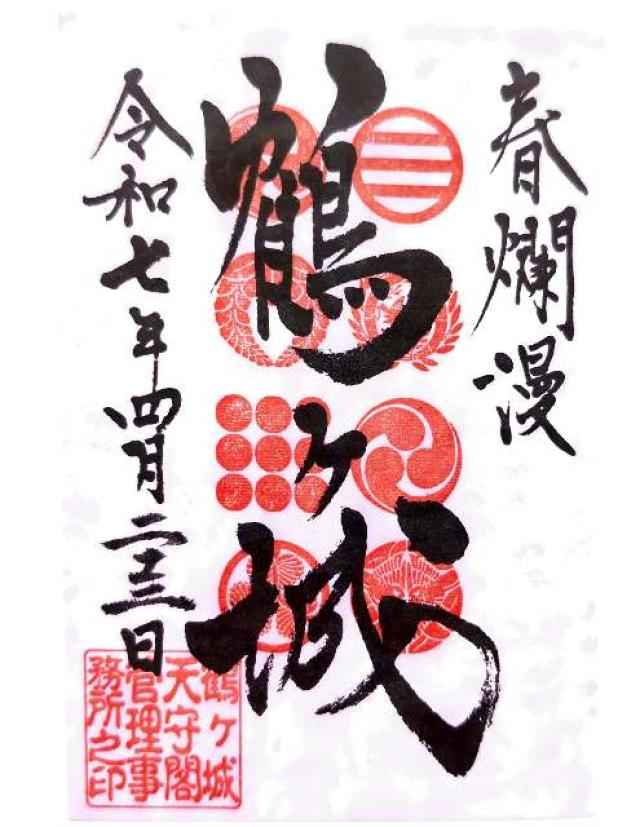 春爛漫
鶴ヶ城
令和七年四月二十三日
鶴ヶ城
天守閣
管理事
務所之印